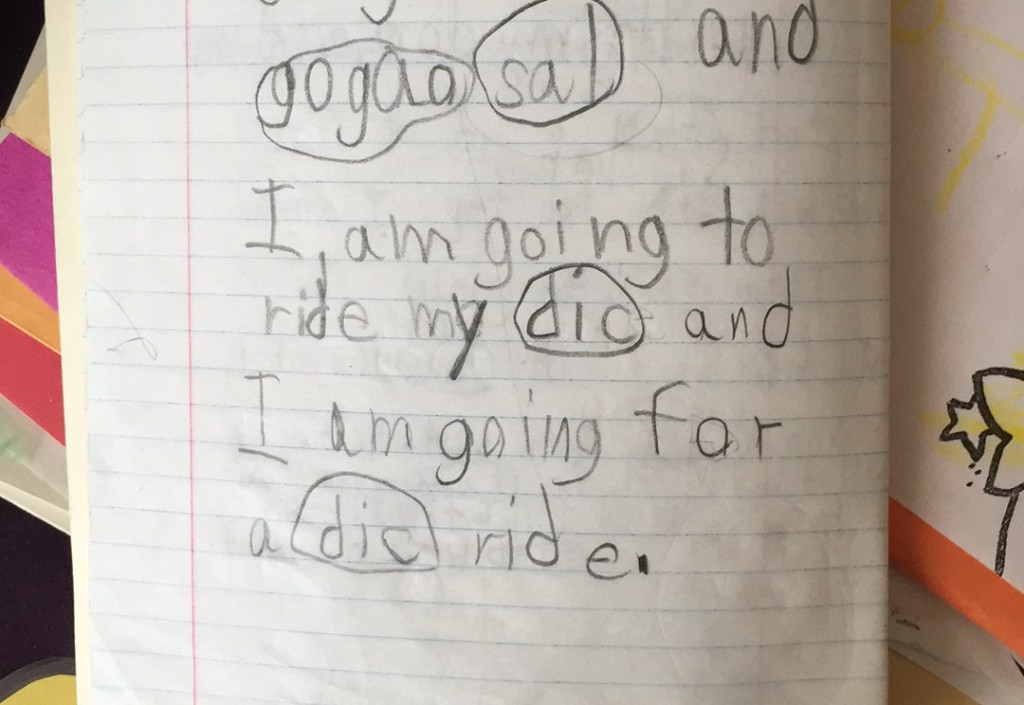 gogao sal and
I am going to
ride my dic and
I am going for
a dic ride.